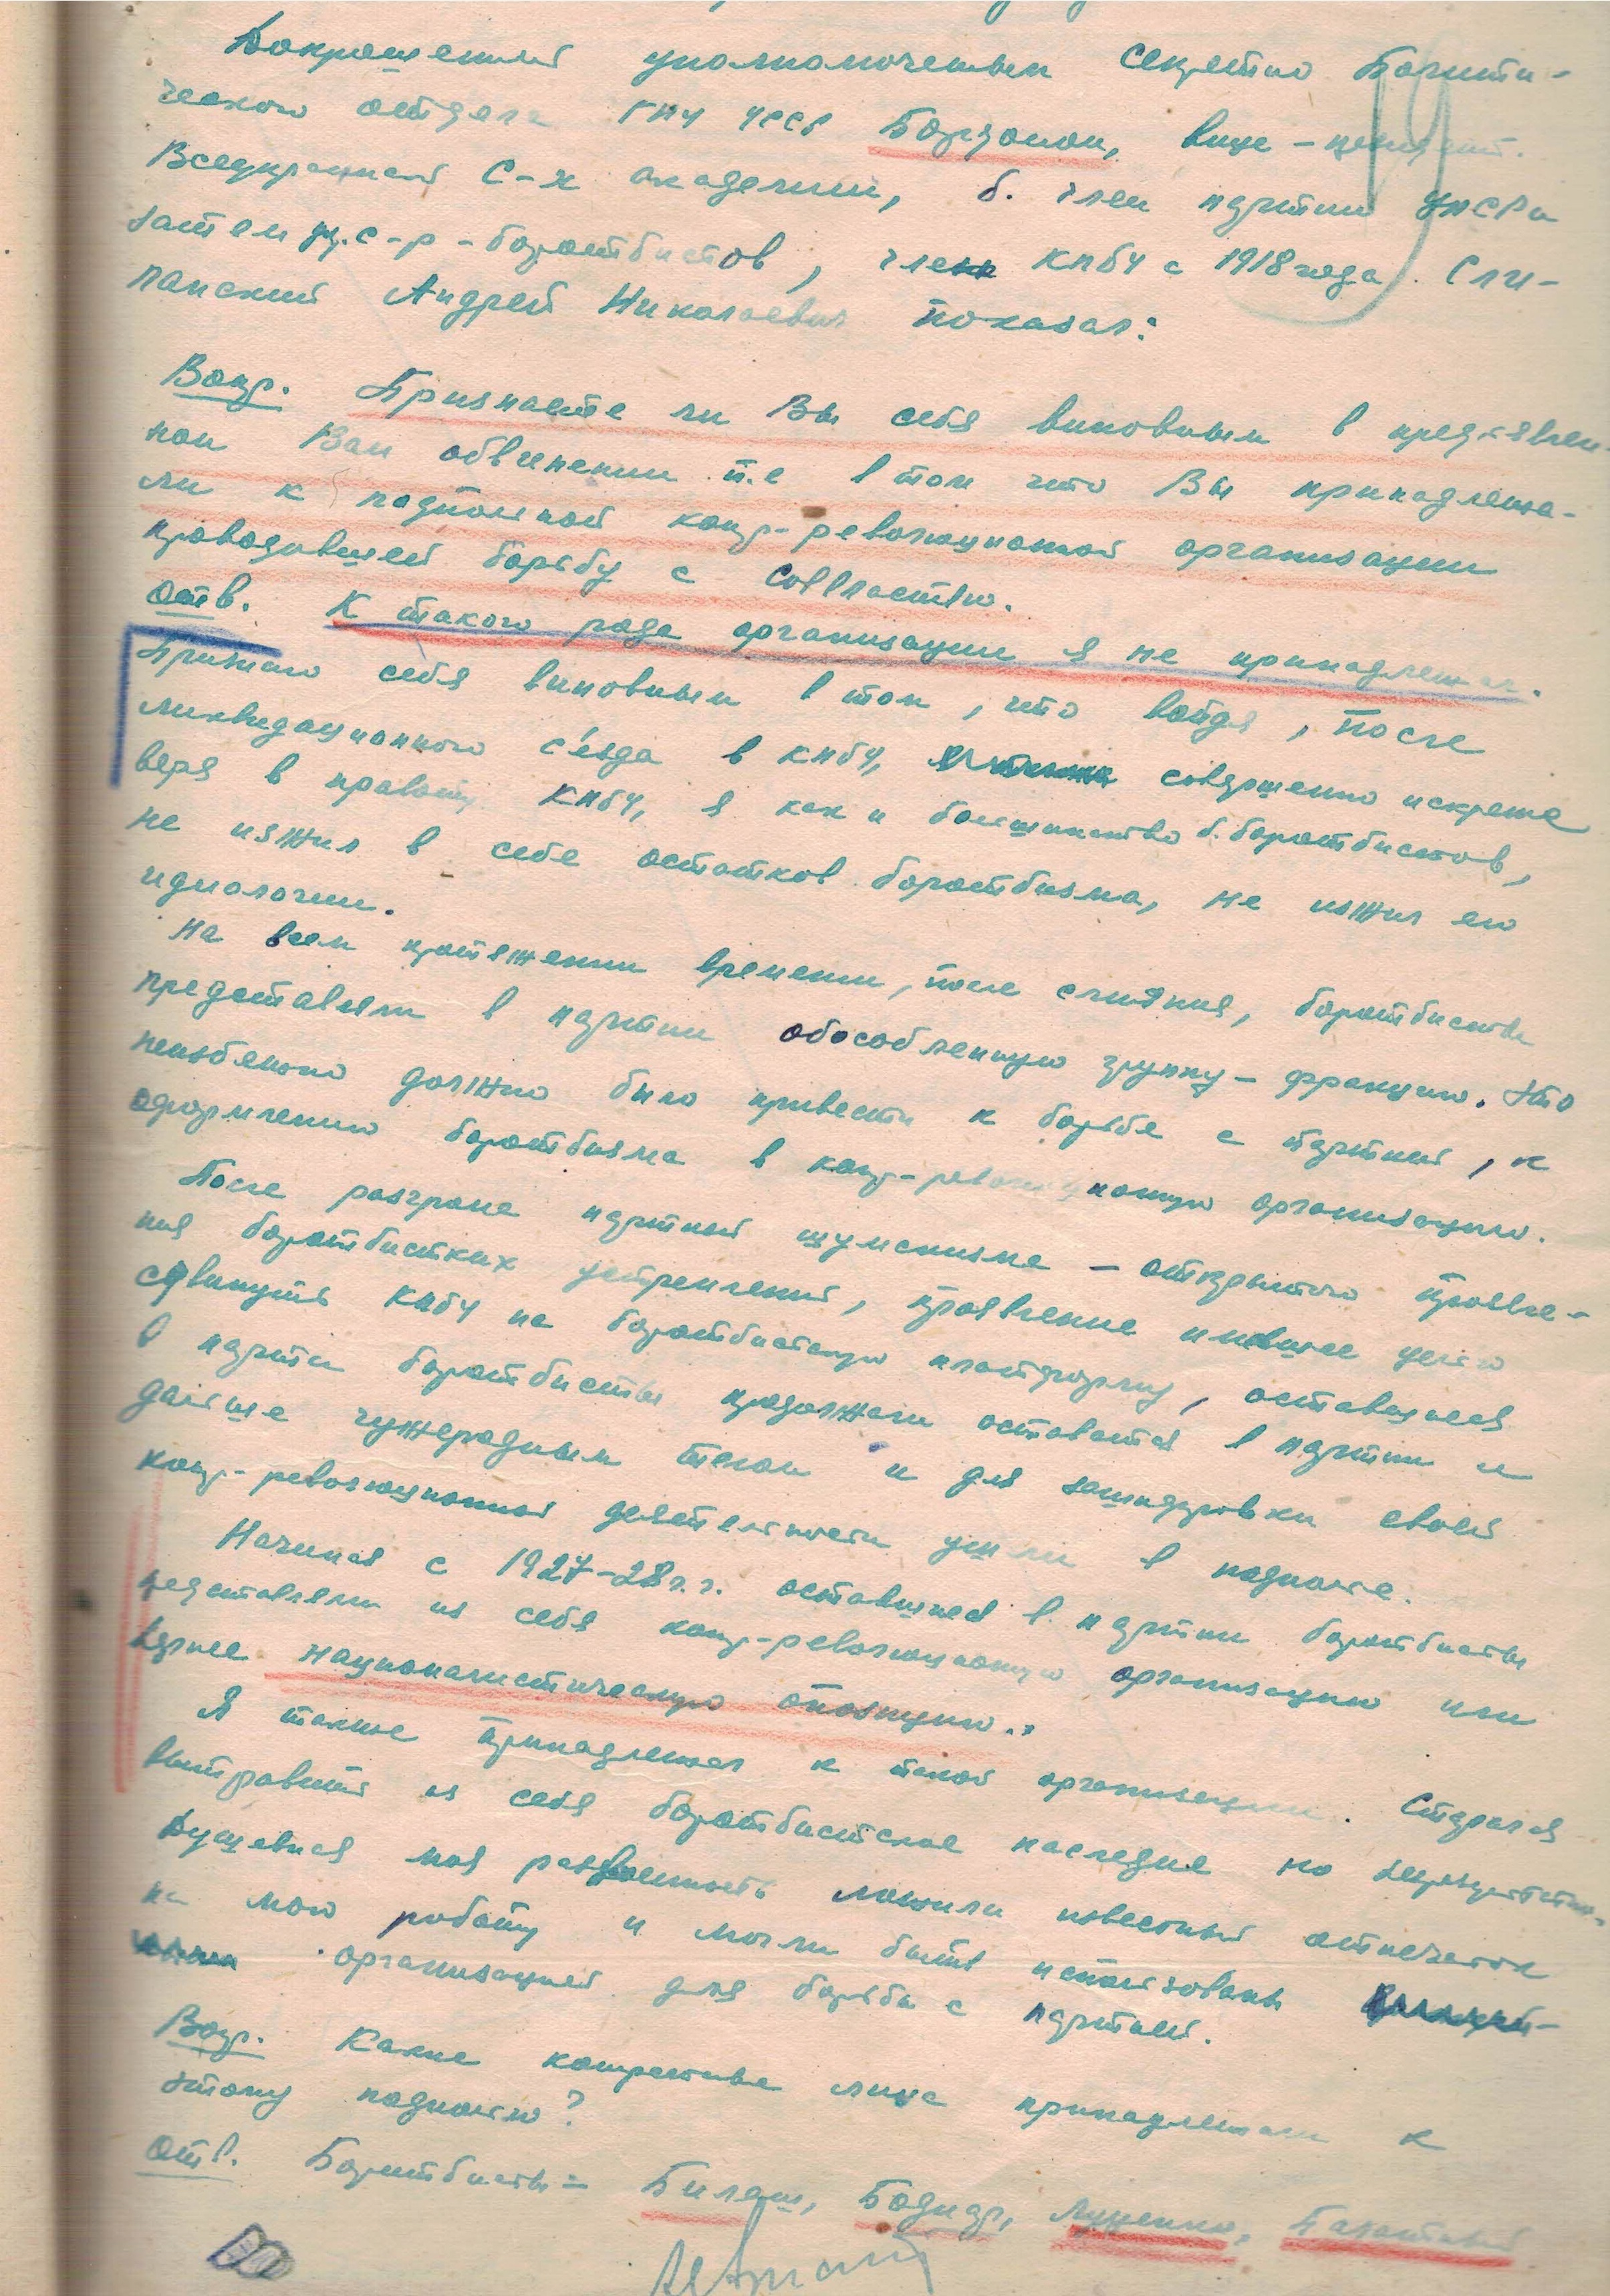 Допрошенный уполномоченным Секретно Полити-
ческого отдела ГПУ УССР Борзоном, вице-президент.
Всеукраинской С-х академии, б. член партии УПСР и
затем у.с-р-боротбистов, член КПбУ с 1918 года. Сли-
панский Андрей Николаевич показал:
Вопр. Признаете ли Вы себя виновным в предъявлен-
ном Вам обвинении т.е в том что Вы принадлежа-
ли к подпольной контр-революционной организации
проводившей борьбу с Соввластью.
Отв. К такого рода организации я не принадлежал.
Признаю себя виновным в том, что войдя, после
ликвидационного с'езда в КПбУ, совершенно искренне
веря в правоту КПбУ, я как и большинство б. боротбистов,
не изжил в себе остатков боротбизма, не изжил его
идиологии.
На всем протяжении времени, после слияния, боротбисты
представляли в партии обособленную группу-фракцию. Это
неизбежно должно было привести к борьбе с партией, к
оформлению боротбизма в контр-революционную организацию.
После разгрома партией шумскизма - открытого проявле-
ния боротбистких устремлений, проявление имевшее целью
сдвинуть КПбУ на боротбистскую платформу, оставшиеся
в партии боротбисты продолжали оставаться в партии и
дальше чужеродным телом и для зашифровки своей
контр-революционной деятельности ушли в подполье.
Начиная с 1927-28 г.г. оставшиеся в партии боротбисты
представляли из себя контр-революционную организацию или
вернее националистическую опозицию.
Я также принадлежал к такой организации. Старался
вытравить из себя боротбистское наследие но
Душевная моя раздвоенность ложили известный отпечаток
на мою работу и могли быть использованы
организацией для борьбы с партией.
Вопр. Какие конкретные лица принадлежали к
этому подполью?
Отв. Боротбисты - Билаш, Бодидр, Луценко,